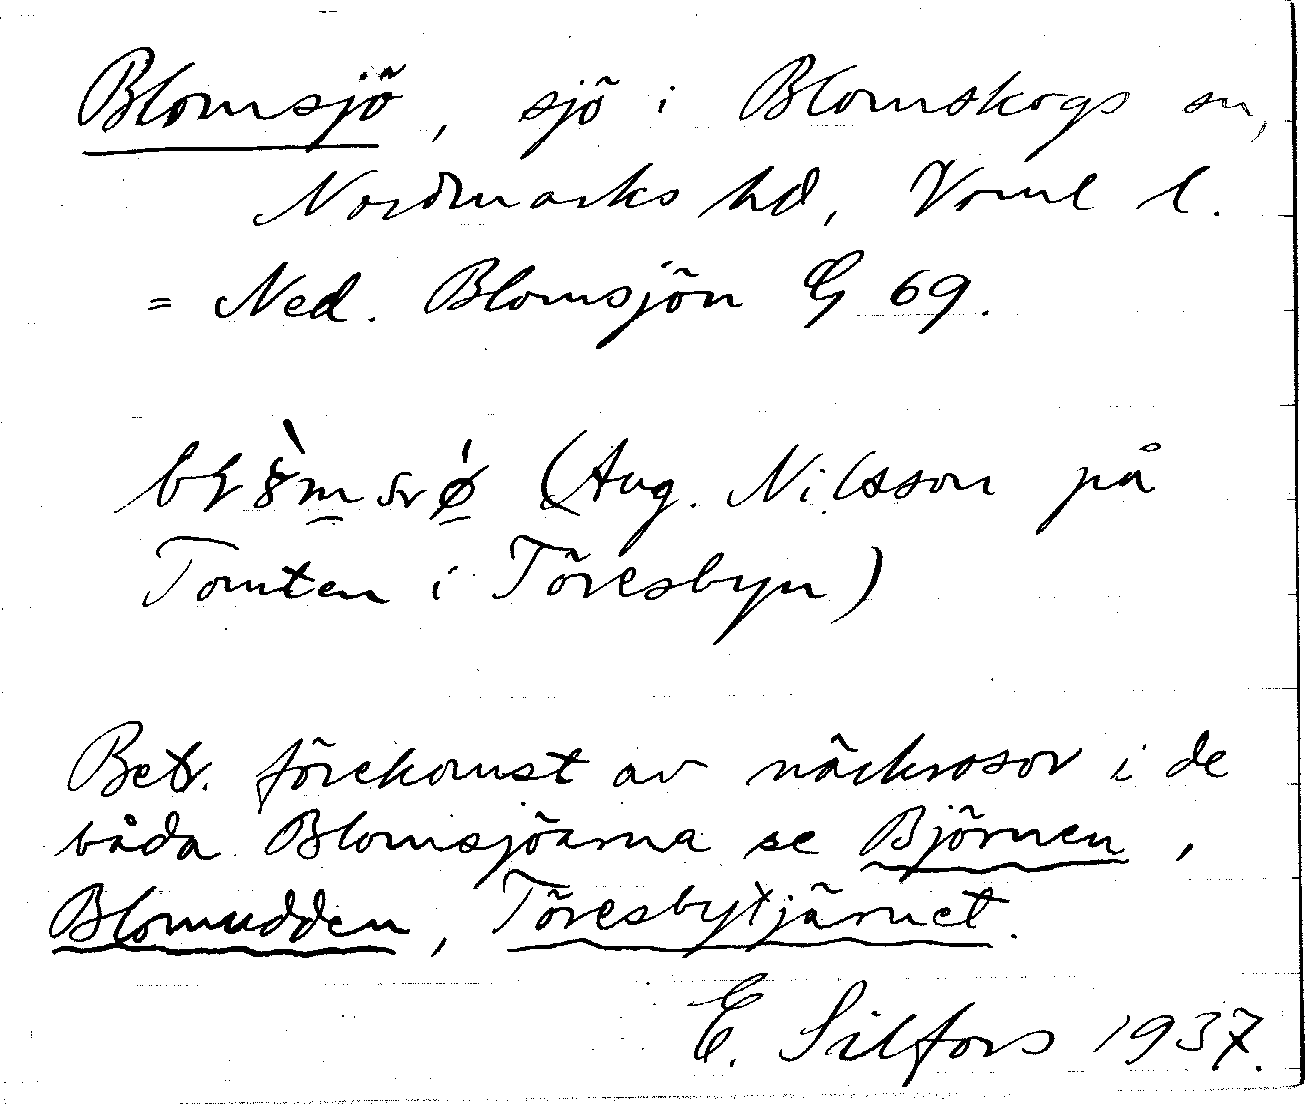 Blomsjö, sjö i Blomskogs sn,
Nordmarks hd, Vrml l.
= Ned. Blomsjön G 69.
(Aug. Nilsson på
Tomten i Töresbyn)
Betr. förekomst av näckrosor i de
båda Blomsjöarna se Björnen,
Blomudden, Töresbytjärnet.
E. Silfors 1937.